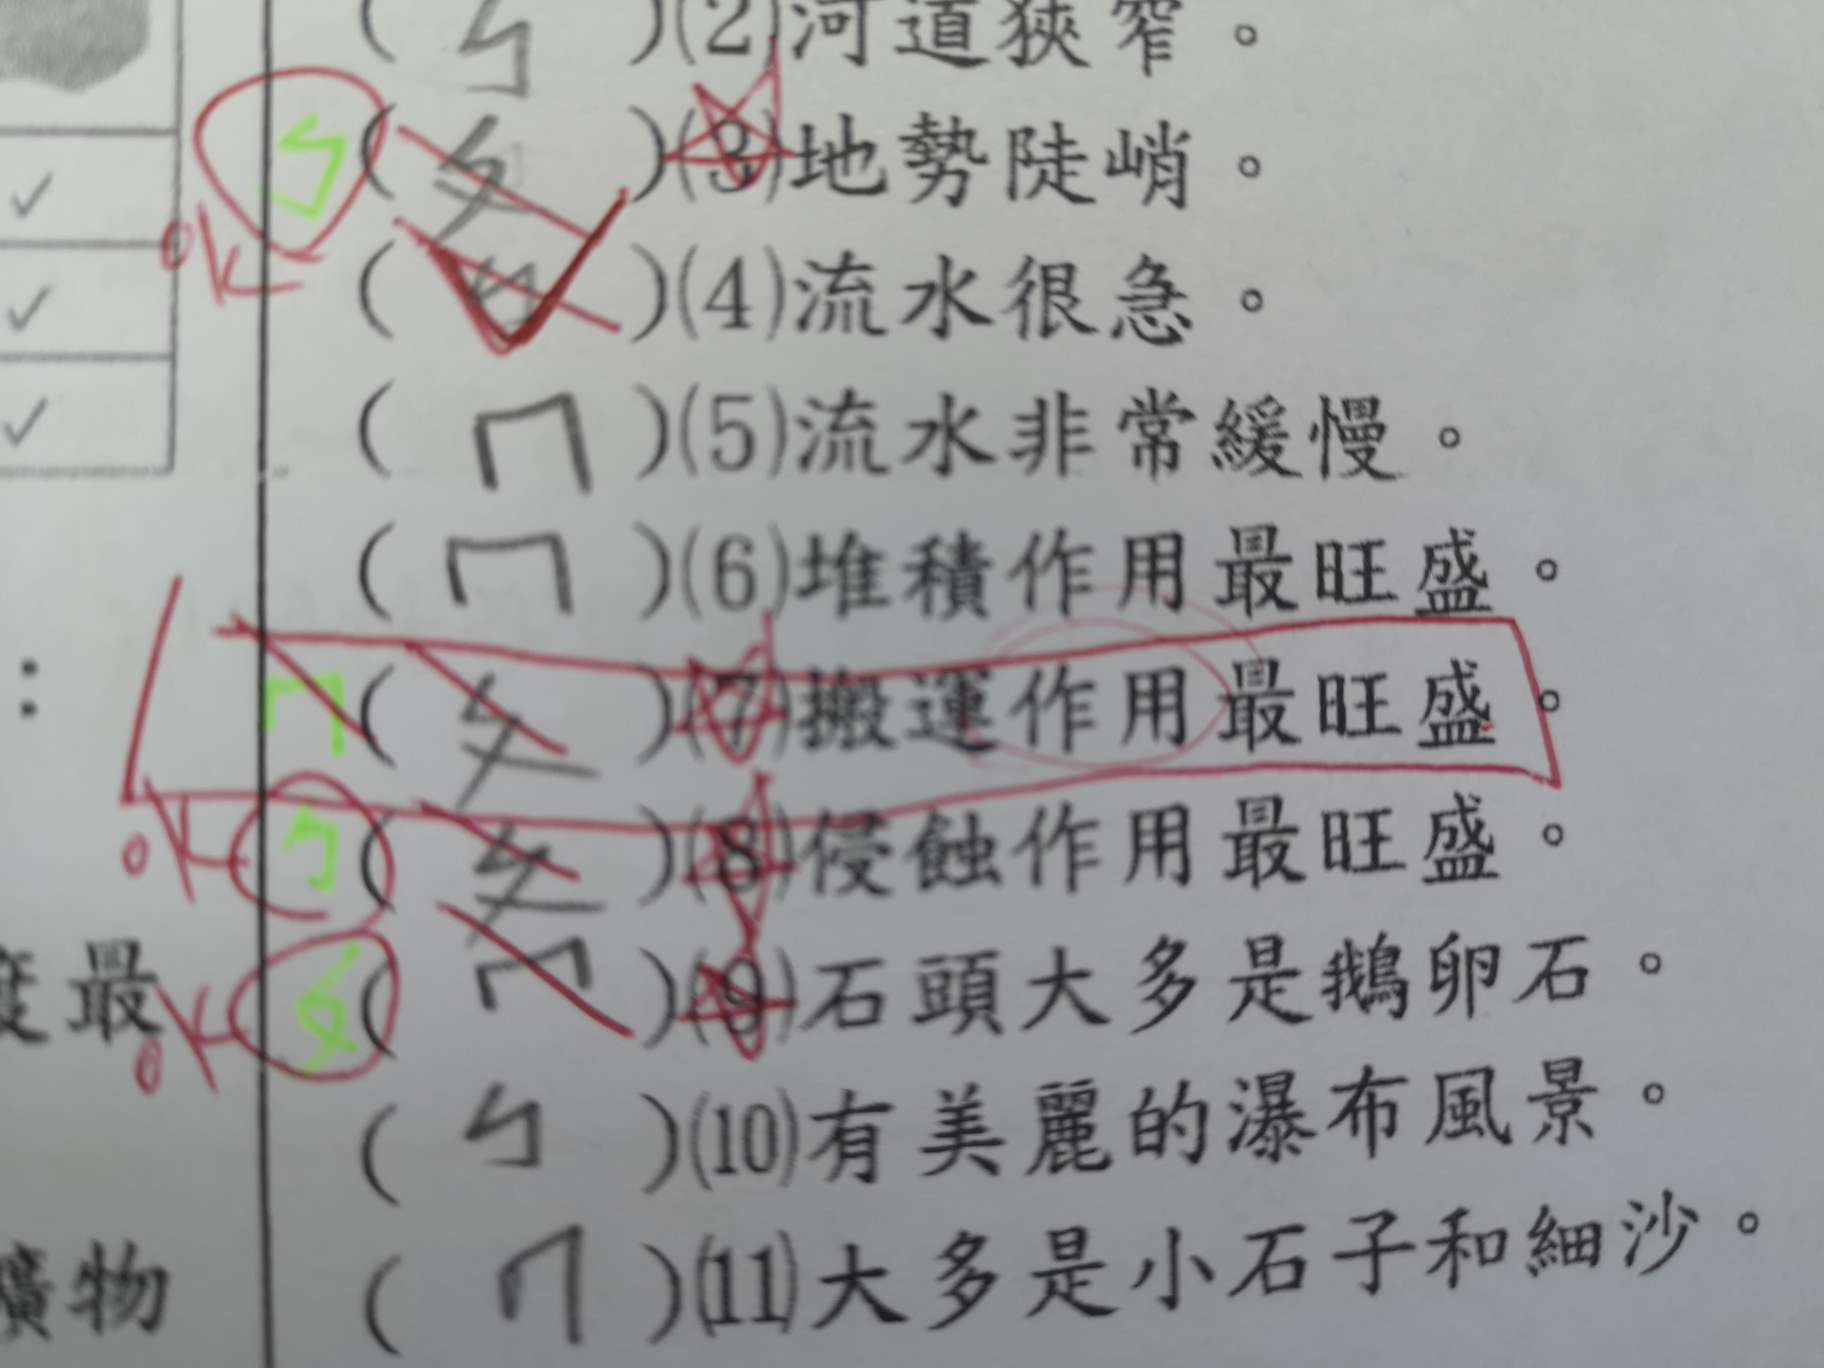 (ㄣ)(2)河道狹窄。
ㄣ(ㄆ)(3)地勢陡峭。
OK
(ㄣ)(4)流水很急。
(ㄇ)(5)流水非常緩慢。
(ㄇ)(6)堆積作用最旺盛。
:
ㄇ(ㄆ)(7)搬運作用最旺盛。
OK ㄣ(ㄆ)(8)侵蝕作用最旺盛。
度最
OK ㄆ(ㄇ)(9)石頭大多是鵝卵石。
(ㄣ)(10)有美麗的瀑布風景。
礦物
(ㄇ)(11)大多是小石子和細沙。